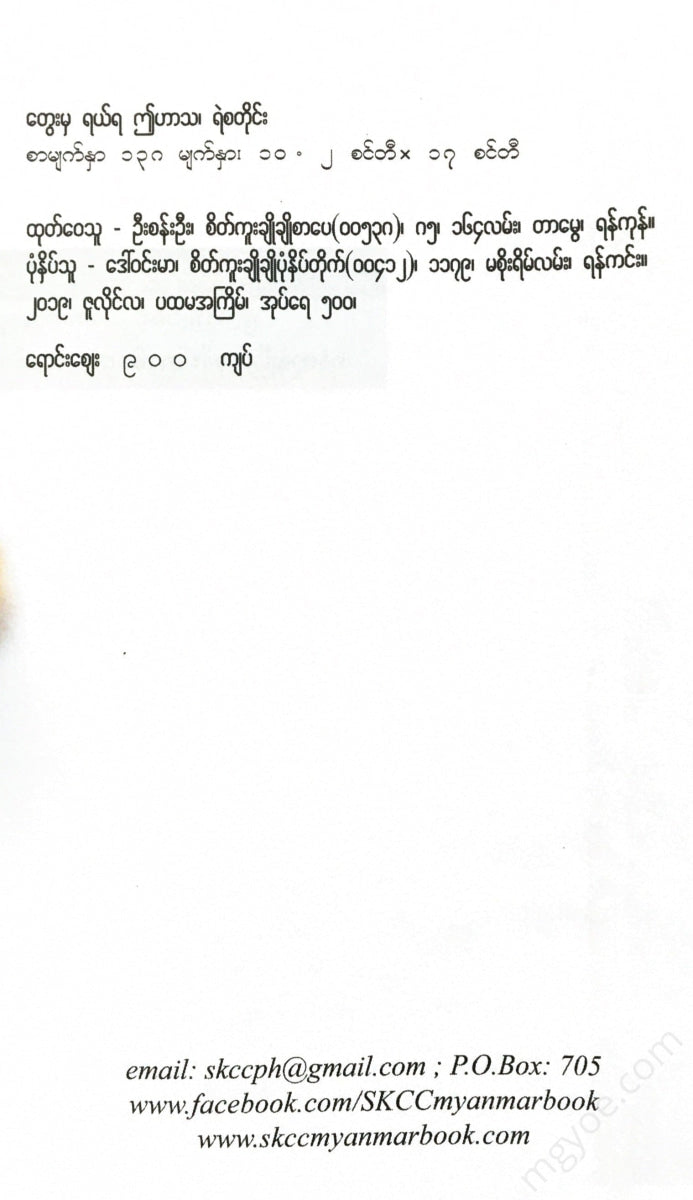 တွေးမှ ရယ်ရ ဤဟာသ၊ ရဲစတိုင်း
စာမျက်နှာ ၁၃ဂ မျက်နှာ၊ ၁၀ . ၂ စင်တီ× ၁၇ စင်တီ
ထုတ်ဝေသူ - ဦးစန်းဦး၊ စိတ်ကူးချိုချိုစာပေ(၀၀၅၃ဂ)၊ ဂ၅၊ ၁၆၄လမ်း၊ တာမွေ၊ ရန်ကုန်။
ပုံနှိပ်သူ - ဒေါ်ဝင်းမာ၊ စိတ်ကူးချိုချိုပုံနှိပ်တိုက်(၀၀၄၁၂)၊ ၁၁၇၉၊ မစိုးရိမ်လမ်း၊ ရန်ကင်း။
၂၀၁၉၊ ဇူလိုင်လ၊ ပထမအကြိမ်၊ အုပ်ရေ ၅၀၀၊
ရောင်းဈေး ၉ ၀ ၀ ကျပ်
email: skccph@gmail.com ; P.O.Box: 705
www.facebook.com/SKCCmyanmarbook
www.skccmyanmarbook.com
mgyoe.com